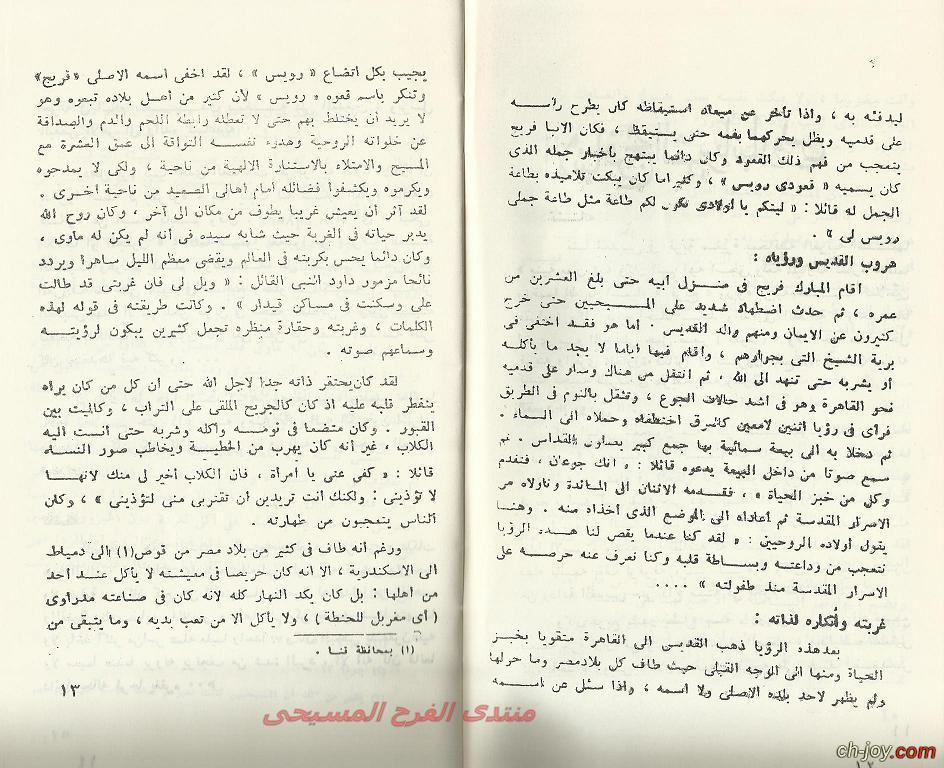 ليدفئه به ، واذا تأخر عن ميعاد استيقاظه كان يطرح رأسه
على قدميه ويظل يحركهما بفمه حتى يستيقظ ، فكان الانبا فريج
يتعجب من فهم ذلك القعود وكان دائما يبتهج بأخبار جمله الذى
كان يسميه « قعودى رويس » ، وكثيرا ما كان يبكت تلاميذه بطاعة
الجمل له قائلا : « ليتكم يا أولادى تكون لكم طاعة مثل طاعة جملى
رويس لى » .
هروب القديس ورؤياه :
أقام المبارك فريج فى منزل أبيه حتى بلغ العشرين من
عمره ، ثم حدث اضطهاد شديد على المسيحيين حتى خرج
كثيرون عن الايمان ومنهم والد القديس . أما هو فقد اختفى فى
برية الشيخ التى بجوارهم ، وأقام فيها أياما لا يجد ما يأكله
أو يشربه حتى تنهد الى الله . ثم انتقل من هناك وسار على قدميه
نحو القاهرة وهو فى أشد حالات الجوع ، وتثقل بالنوم فى الطريق
فرأى فى رؤيا اثنين لامعين كالبرق اختطفاه وحملاه الى السماء .
ثم دخلا به الى بيعة سمائية بها جمع كبير يصلون القداس . ثم
سمع صوتا من داخل البيعة يدعوه قائلا : « انك جوعان ، فتقدم
وكل من خبز الحياة » ، فقدمه الاثنان الى المائدة وناولاه من
الاسرار المقدسة ثم أعاداه الى الموضع الذى أخذاه منه . وهنا
يقول أولاده الروحيين : « لقد كنا عندما يقص لنا هذه الرؤيا
نتعجب من وداعته وبساطة قلبه وكنا نعرف عنه حرصه على
الاسرار المقدسة منذ طفولته » ....
غربته وانكاره لذاته :
بعد هذه الرؤيا ذهب القديس الى القاهرة متقويا بخبز
الحياة ومنها الى الوجه القبلى حيث طاف كل بلاد مصر وما حولها
ولم يظهر لاحد بلده الاصلى ولا اسمه ، واذا سئل عن اسمه
١٢
يجيب بكل اتضاع « رويس » ، لقد اخفى اسمه الاصلى «فريج»
وتنكر باسم قعوده « رويس » لأن كثير من أهل بلاده تبعوه وهو
لا يريد أن يختلط بهم حتى لا تعطله رابطة اللحم والدم والصداقة
عن خلواته الروحية وهدوء نفسه التواقة الى عمق العشرة مع
المسيح والامتلاء بالاستنارة الالهية من ناحية ، ولكى لا يمدحوه
ويكرموه ويكشفوا فضائله أمام أهالى الصعيد من ناحية أخرى .
لقد آثر أن يعيش غريبا يطوف من مكان الى آخر ، وكان روح الله
يدبر حياته فى الغربة حيث شابه سيده فى أنه لم يكن له مأوى ،
وكان دائما يحس بكربته فى العالم ويقضى معظم الليل ساهرا ويردد
نائحا مزمور داود النبى القائل : « ويل لى فان غربتى قد طالت
على وسكنت فى مساكن قيدار » . وكانت طريقته فى قوله لهذه
الكلمات ، وغربته وحقارة منظره تجعل كثيرين يبكون لرؤيته
وسماعهم صوته .
لقد كان يحتقر ذاته جدا لاجل الله حتى ان كل من كان يراه
ينفطر قلبه عليه اذ كان كالجريح الملقى على التراب ، وكالميت بين
القبور . وكان متضعا فى نومه وأكله وشربه حتى أنست اليه
الكلاب ، غير أنه كان يهرب من الخطية ويخاطب صور النساء
قائلا : « كفى عنى يا امرأة ، فان الكلاب أخير لى منك لانها
لا تؤذينى : ولكنك أنت تريدين أن تقتربى منى لتؤذينى » ، وكان
الناس يتعجبون من طهارته .
ورغم أنه طاف فى كثير من بلاد مصر من قوص(١) الى دمياط
الى الاسكندرية ، الا انه كان حريصا فى معيشته لا يأكل عند أحد
من أهلها : بل كان يكد النهار كله لانه كان فى صناعته مدراوى
( أى مغربل للحنطة ) ، ولا يأكل الا من تعب يديه ، وما يتبقى من
(١) بمحافظة قنا .
١٣
منتدى الفرح المسيحى
ch-joy.com